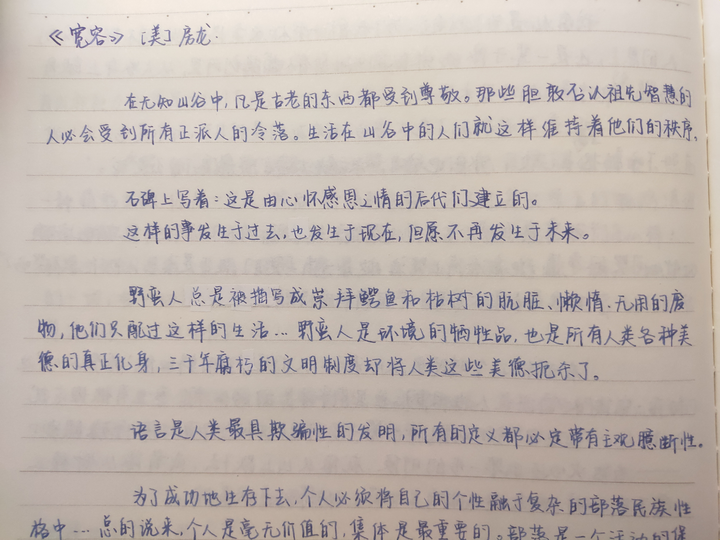 《宽容》 [美] 房龙.
在无知山谷中，凡是古老的东西都受到尊敬。那些胆敢否认祖先智慧的
人必会受到所有正派人的冷落。生活在山谷中的人们就这样维持着他们的秩序.
石碑上写着：这是由心怀感恩之情的后代们建立的。
这样的事发生于过去，也发生于现在，但愿不再发生于未来。
野蛮人总是被描写成崇拜鳄鱼和枯树的肮脏、懒惰.无用的废
物，他们只配过这样的生活…野蛮人是环境的牺牲品，也是所有人类各种美
德的真正化身，三千年腐朽的文明制度却将人类这些美德扼杀了。
语言是人类最具欺骗性的发明，所有的定义都必定带有主观臆断性。
为了成功地生存下去，个人必须将自己的个性融于复杂的部落民族性
格中…总的说来，个人是毫无价值的，集体是最重要的。部落是一个活动的堡